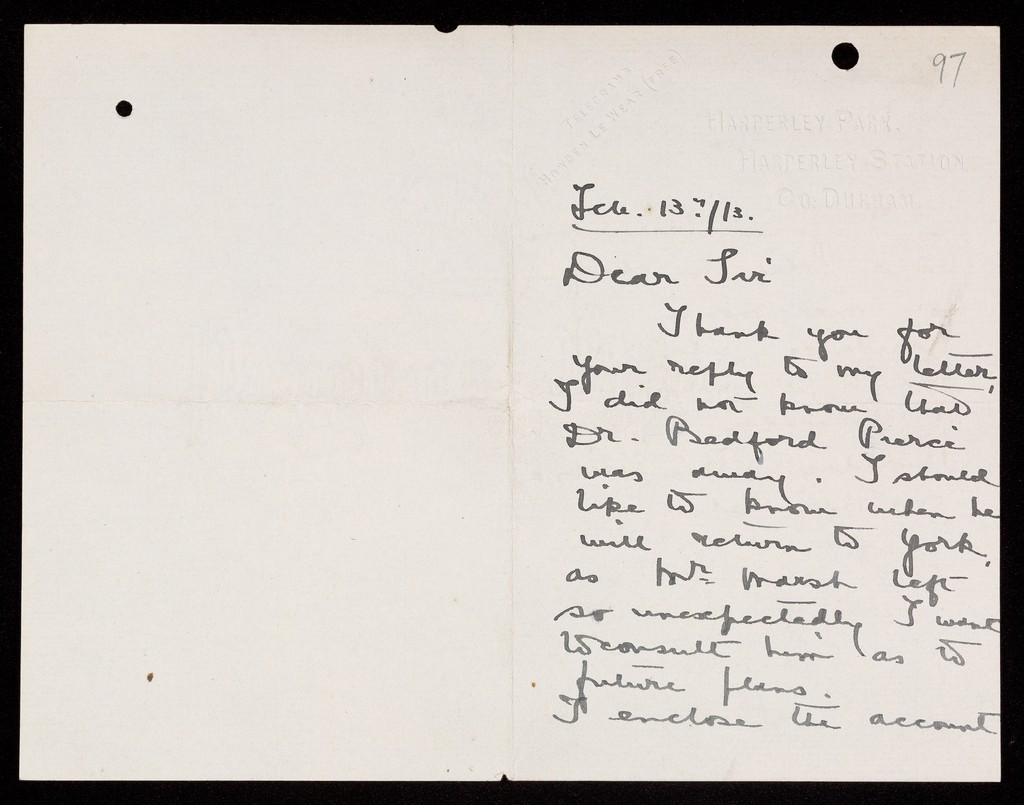 97
TELEGRAMS
HOWDEN LE WEAR (FREE)
HARPERLEY PARK.
HARPERLEY STATION
CO. DURHAM.
Feb. 13th/13.
Dear Sir
Thank you for
your reply to my letter,
I did not know that
Dr. Bedford Pierce
was away. I should
like to know when he
will return to York,
as Mr Marsh left
so unexpectedly I want
to consult him as to
future plans.
I enclose the account